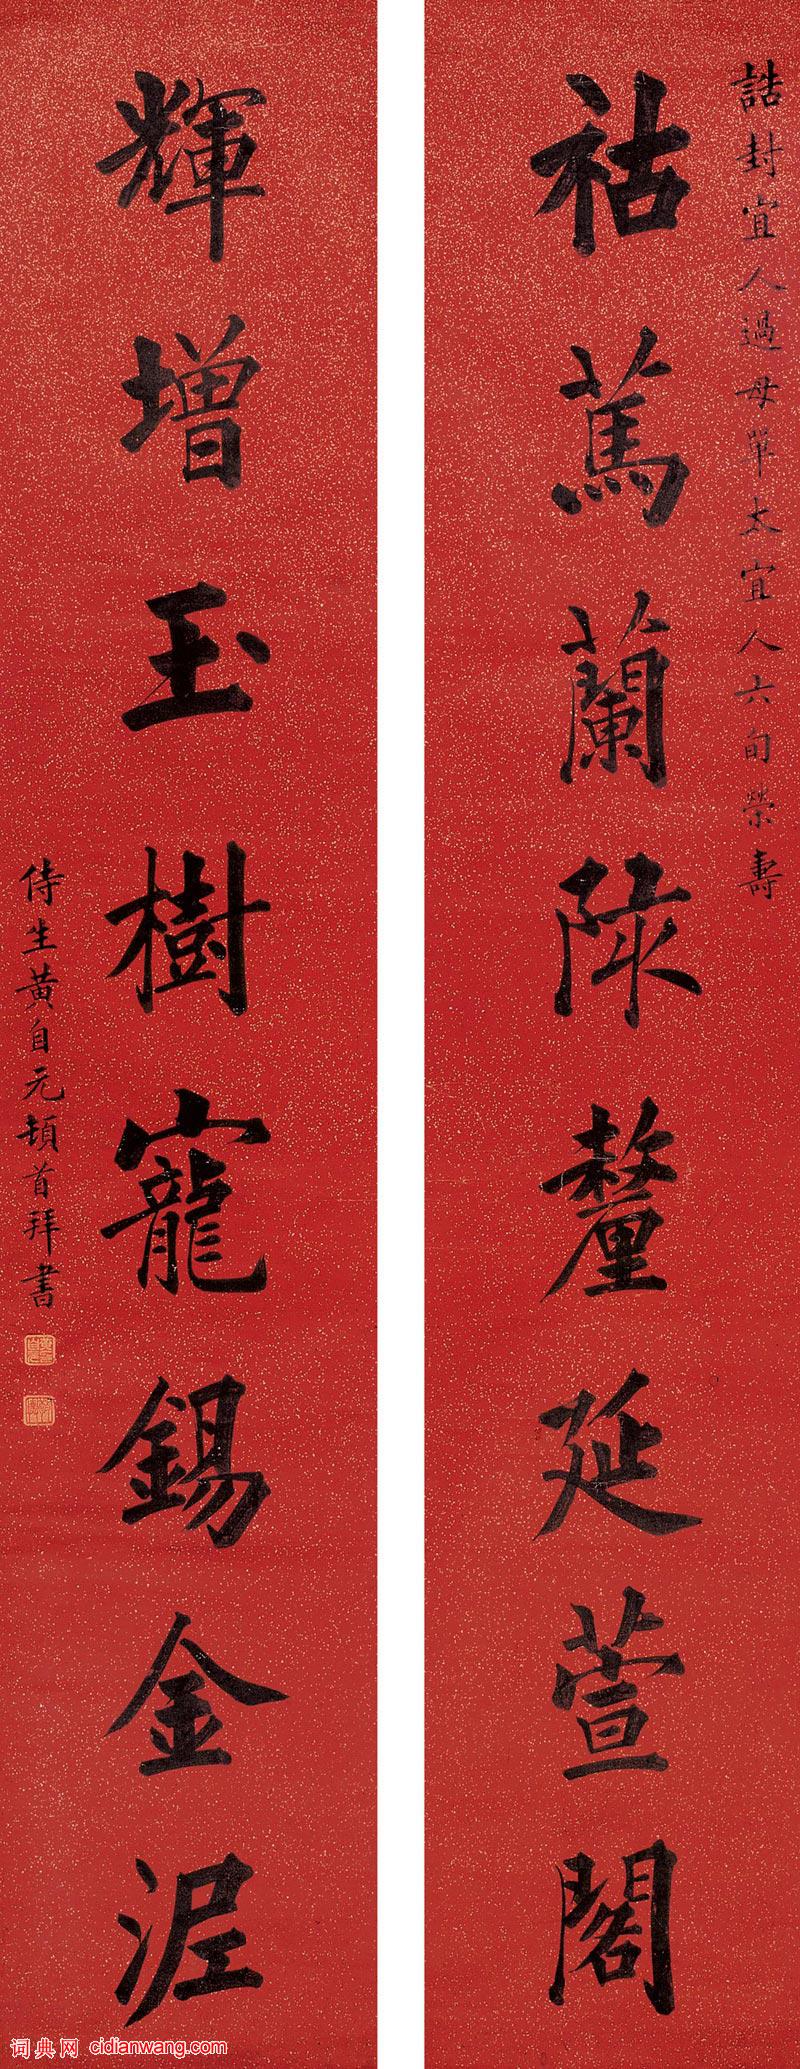 誥封宜人過母單太宜人六旬榮壽
祜篤蘭陔釐延萱閣
輝增玉樹寵錫金泥
侍生黃自元頓首拜書
词典网 cidianwang.com